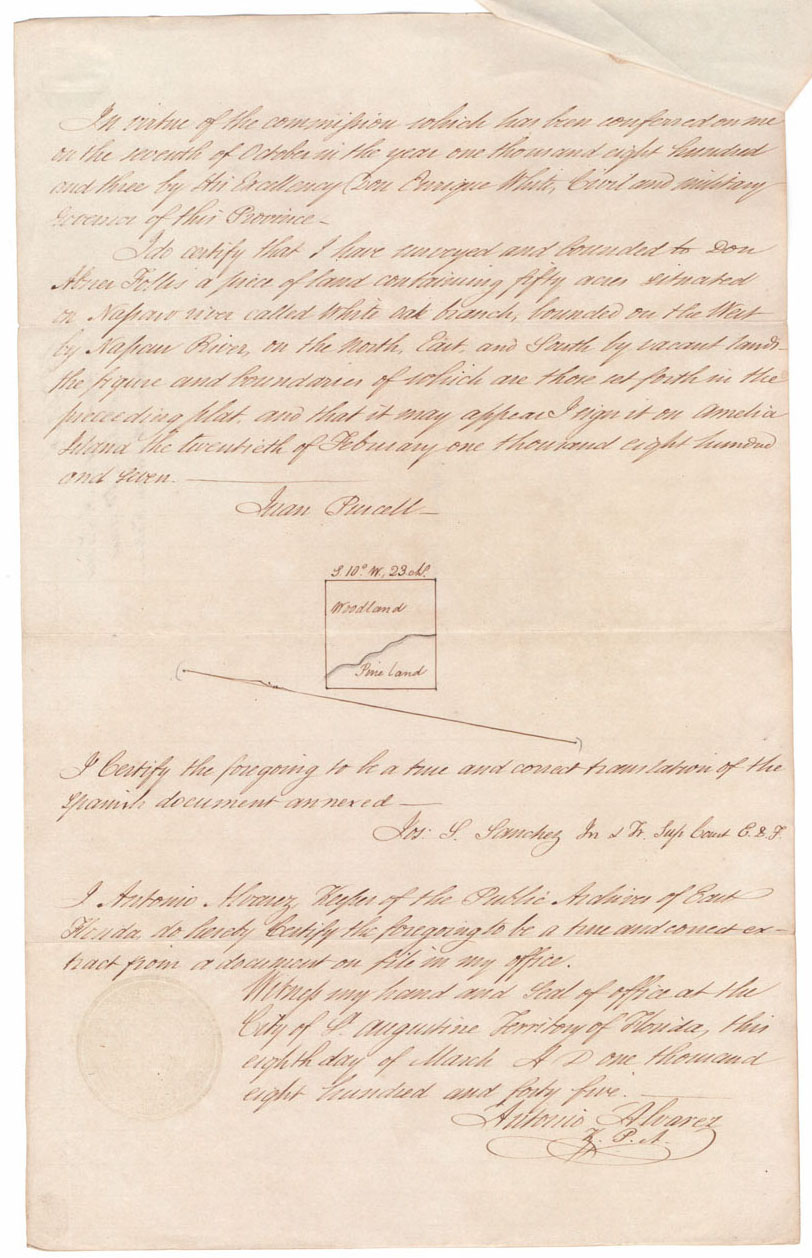 In virtue of the commission which has been conferred on me
on the seventh of October in the year one thousand eight hundred
and three by His Excellency Don Enrique White, Civil and military
Governor of this Province -
I do certify that I have surveyed and bounded to Don
Abner Follis a piece of land containing fifty acres situated
on Nassau river called White oak branch, bounded on the West
by Nassau River, on the North, East, and South by vacant lands
the figure and boundaries of which are those set forth in the
preceeding plat, and that it may appear I sign it on Amelia
Island the twentieth of February one thousand eight hundred
and seven.
Juan Purcell -
S. 10° W, 23.
Woodland
Pine land
I Certify the foregoing to be a true and correct translation of the
Spanish document annexed -
Jos: S. Sanchez In & Tr. Sup Court E. & F.
I Antonio Alvarez, Keeper of the Public Archives of East
Florida, do hereby Certify the foregoing to be a true and correct ex-
tract from a document on file in my office.
Witness my hand and Seal of office at the
City of St. Augustine Territory of Florida, this
eighth day of March A D one thousand
eight hundred and forty five.
Antonio Alvarez
K. P. A.